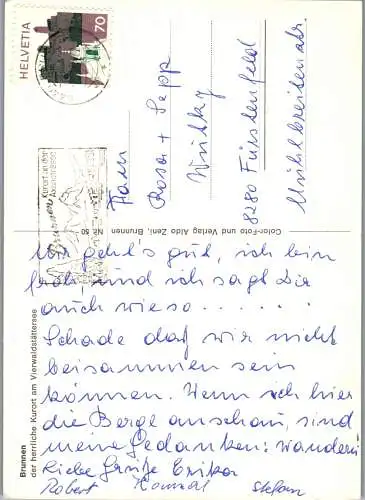 HELVETIA
70
Kurort an der
Axenstrasse
Brunnen
Fam
Rosa + Sepp
Wutky
8280 Fürstenfeld
Mühlbreitenstr.
Color-Foto und Verlag Aldo Zeni, Brunnen Nr. 50
Brunnen
der herrliche Kurort am Vierwaldstättersee
Mir geht's gut, ich bin
froh, und ich sag Dir
auch wieso......
Schade daß wir nicht
beisammen sein
können. Wenn ich hier
die Berge anschau, sind
meine Gedanken: wandern
Liebe Grüße Erika
Robert Konrad Stefan